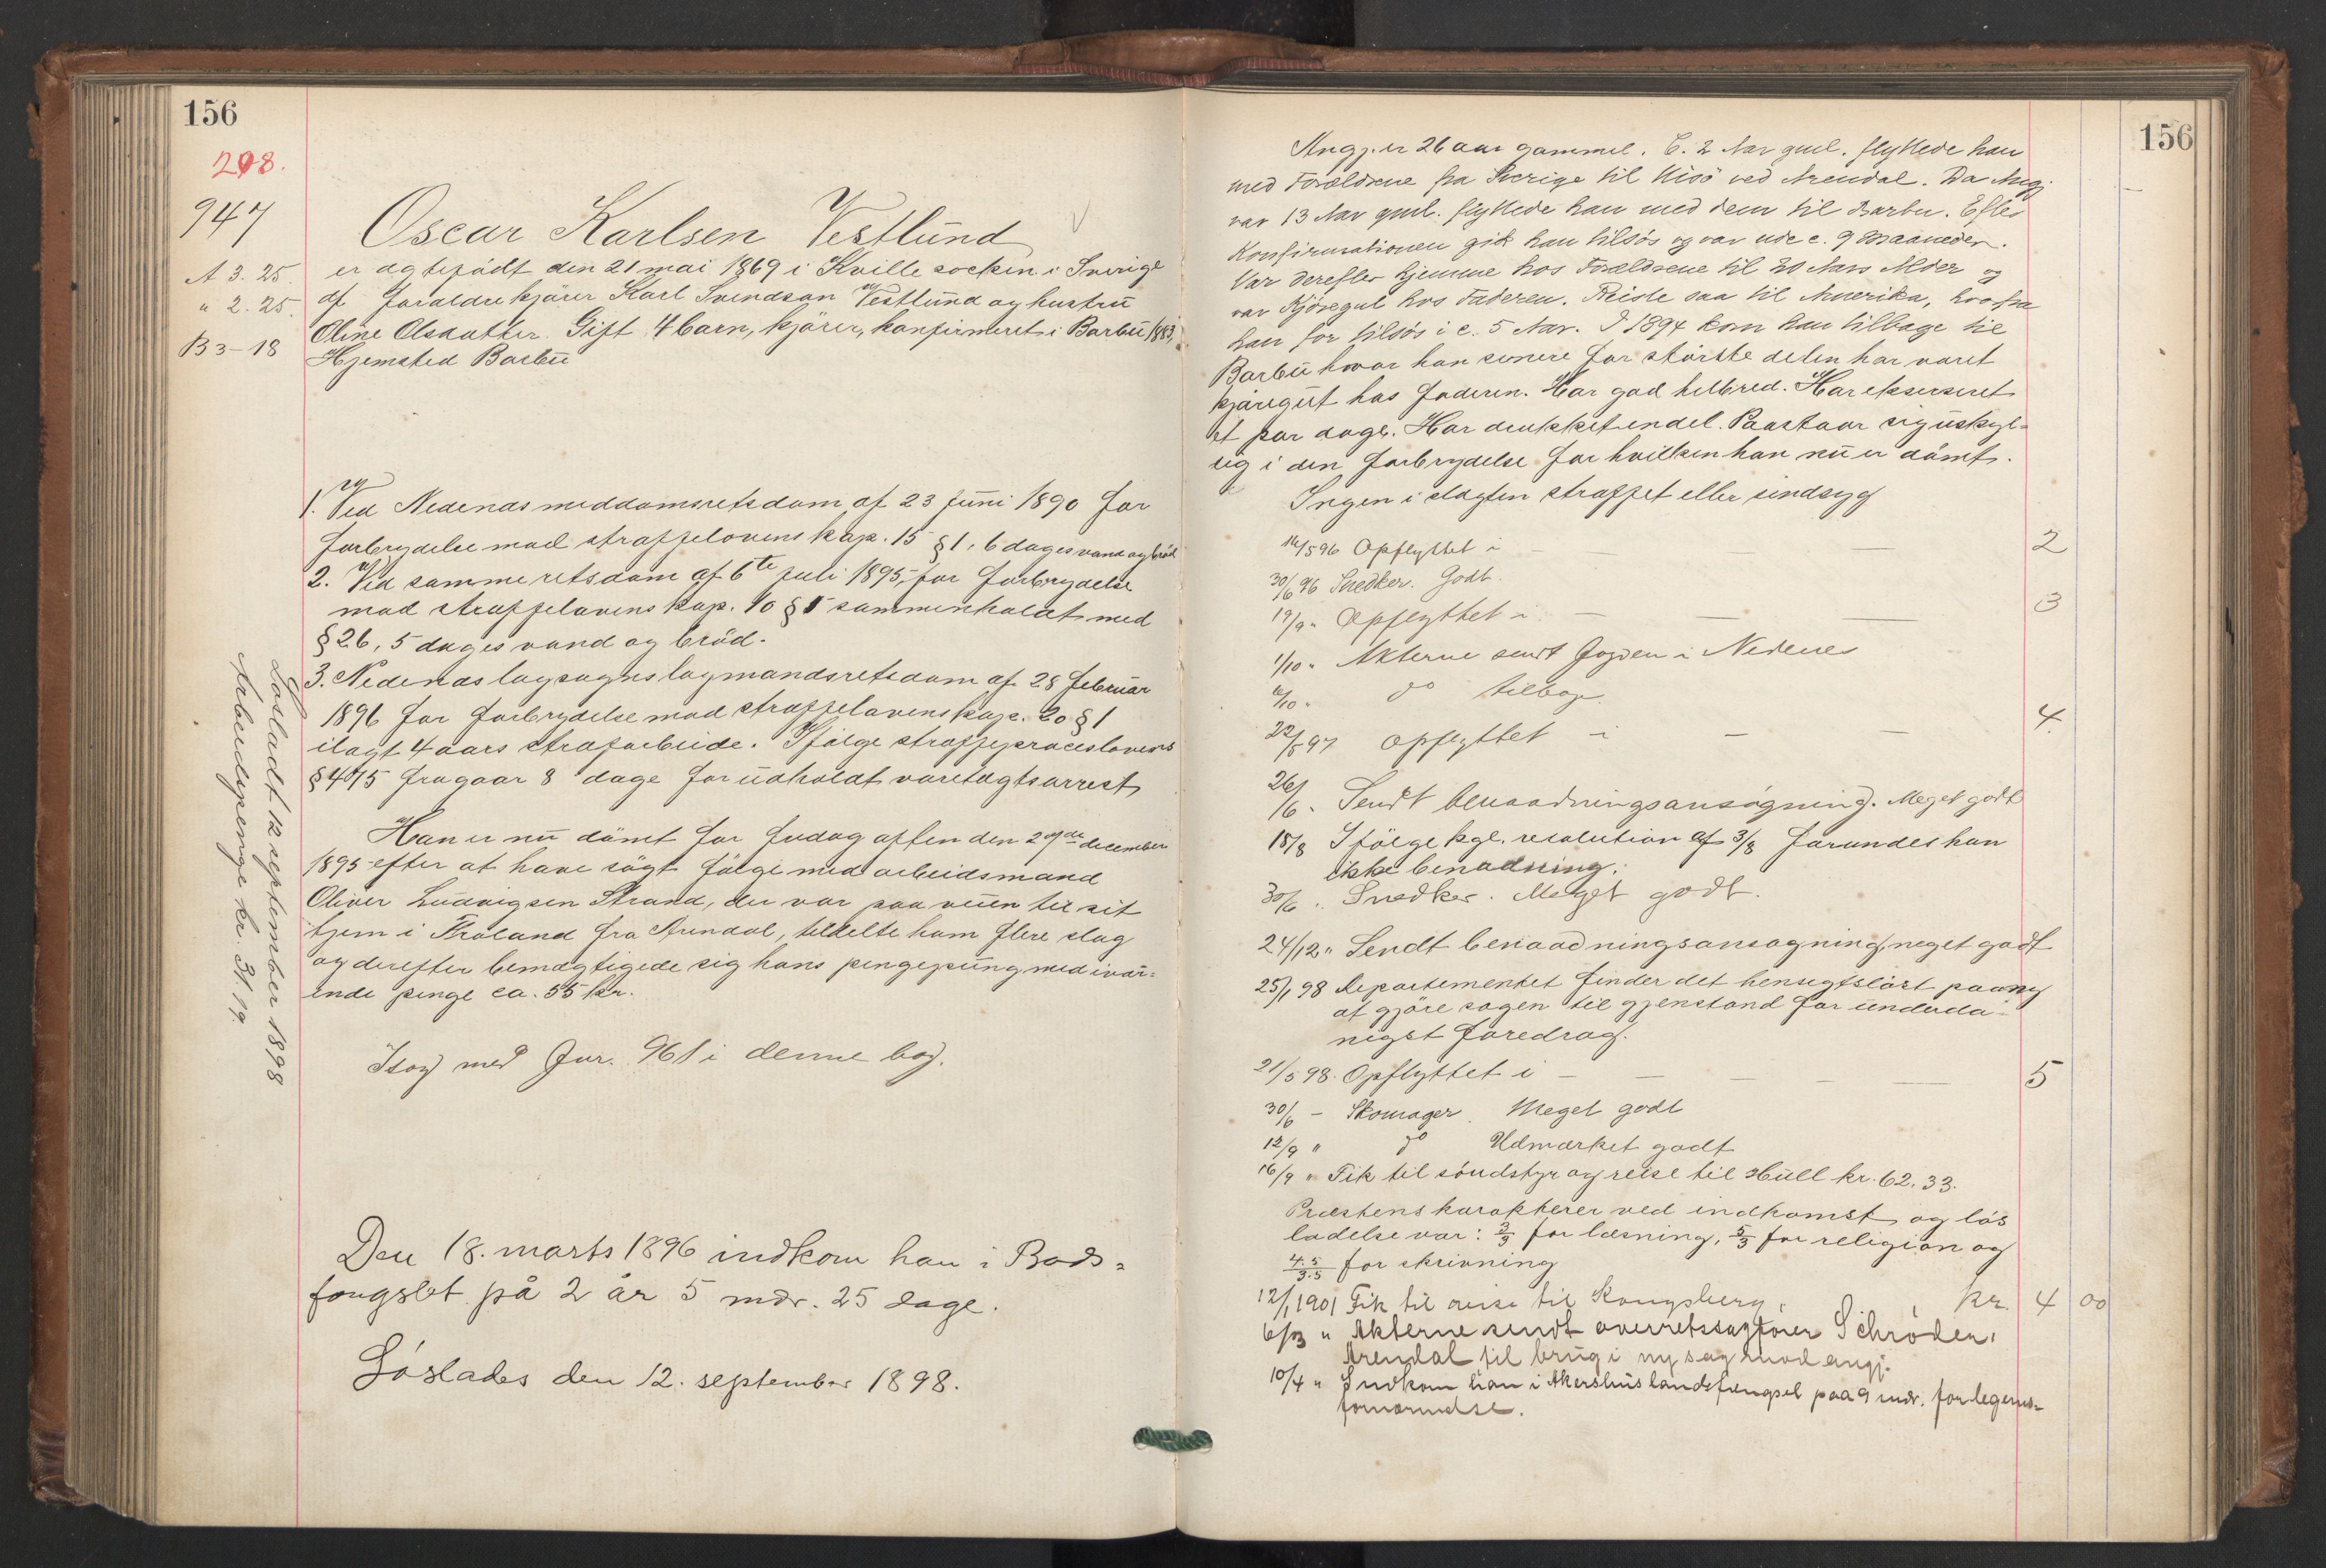 156
298.
947
A 3. 25.
" 2. 25.
B 3 - 18
Oscar Karlsen Vestlund
er ægtefödt den 21 mai 1869 i Kville socken i Sverige
af forældre kjörer Karl Svendsen Vestlund og hustru
Oline Olsdatter. Gift 4 barn, kjörer, konfirmeret i Barbu 1883,
Hjemsted Barbu
1. Ved Nedenæs meddomsretsdom af 23 juni 1890 for
forbrydelse mod straffelovens kap. 15 § 1, 6 dages vand og bröd
2. Ved samme retsdom af 6te juli 1895, for forbrydelse
mod straffelovens kap. 10 § 1 sammenholdt med
§ 26, 5 dages vand og bröd.
3. Nedenæs lagsogns lagmandsretsdom af 28 februar
1896 for forbrydelse mod straffelovens kap. 20 § 1
ilagt 4 aars strafarbeide. Ifölge straffeproceslovens
§ 475 fragaar 8 dage for udholdt varetægtsarrest
Han er nu dömt for fredag aften den 27de december
1895 efter at have sögt fölge med arbeidsmand
Oliver Ludvigsen Strand, der var paa veien til sit
hjem i Froland fra Arendal, tildelte ham flere slag
og derefter bemægtigede sig hans pengepung med ivær-
ende penge ca. 55 kr.
I sag med Jur. 961 i denne bog.
Den 18. marts 1896 indkom han i Bods-
fængslet på 2 år 5 mdr. 25 dage.
Löslades den 12. september 1898.
Lösladt 12 september 1898
Arbeidspenge kr. 31.19.
156
Angj. er 26 aar gammel. C. 2 Aar gml. flyttede han
med Forældrene fra Sverige til Hisö ved Arendal. Da Angj.
var 13 Aar gml. flyttede han med dem til Barbu. Efter
Konfirmationen gik han tilsös og var ude c. 9 Maaneder.
Var derefter hjemme hos Forældrene til 20 Aars Alder og
var Kjöregut hos Faderen. Reiste saa til Amerika, hvorfra
han for tilsös i c. 5 Aar. I 1894 kom han tilbage til
Barbu hvor han senere for störste delen har været
kjöregut hos faderen. Har god helbred. Har ekserseret
et par dage. Har drukket endel. Paastaar sig uskyl-
dig i den forbrydelse for hvilken han nu er dömt.
Ingen i slægten straffet eller sindsyg
14/5 96 Opflyttet i — — 2
30/6 96 Snedker. Godt.
19/9 " Opflyttet i — — — 3
1/10 " Akterne sendt Fogden i Nedenes
/10 " do tilbage
22/5 97 opflyttet i — — 4.
26/6 " Sendt benaadningsansögning. Meget godt
18/8 Ifölge kgl. resolution af 3/8 forundes han
ikke benådning.
30/6 " Snedker. Meget godt.
24/12 " Sendt benaadningsansøgning, meget godt
25/1 98 Departementet finder det hensigtslöst paany
at gjöre sagen til gjenstand for underda-
nigst foredrag.
21/5 98. Opflyttet i — — — — — 5
30/6 — Skomager. Meget godt
12/9 " do Udmærket godt
16/9 " Fik til söudstyr og reise til Hull kr. 62. 33.
Præstens karakterer ved indkomst og lös
ladelse var: 3/3 for læsning, 5/3 for religion og
4.5/3.5 for skrivning
12/1 1901 Fik til reise til Kongsberg, kr. 4 00
6/3 " Akterne sendt overretssagförer Schröder,
Arendal til brug i ny sag mod angj.
10/4 " Indkom han i Akershus landsfængsel paa 9 mdr. for legems-
fornærmelse.